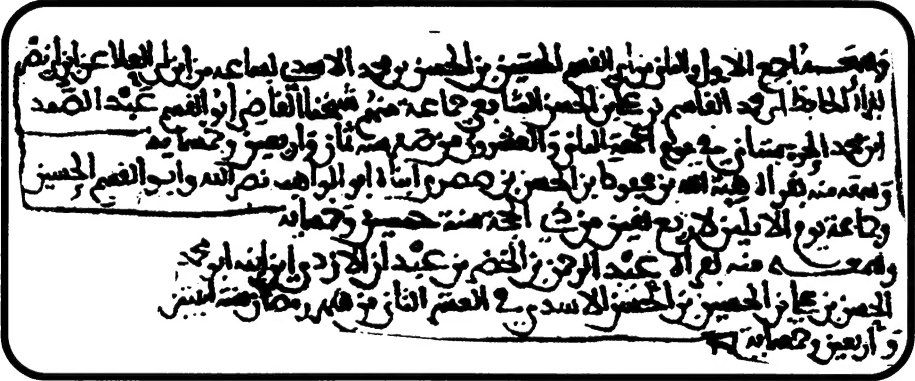 وسمعـــه أجمع الأول والثاني من أبي القسم الحسين بن الحسن بن محمد الاسدي لسماعه من ابن أبي العلا عن ابن أبي نصر
الحافظ أبو محمد القاسم بن علي بن الحسن الشافعي جماعة منهم شيخنا القاضي أبو القسم عبد الصمد
ابن محمد الحرستاني في يوم الجمعة الثاني والعشرين من سنة ثمان وأربعين وخمسمائة
وسمعه منه بقراة هبة الله بن محفوظ بن الحسن بن صصرى ابناه ابو المواهب نصر الله وابو القسم الحسين
وجماعة يوم الاثنين لاربع بقين من ذي الحجة سنة خمسين وخمسمائة
وسمعـــه منه بقراة عبد الرحمن بن الخضر بن عبدان الازدي ابن ابنه ابو محمد
الحسن بن علي بن الحسين بن الحسن الاسدي في العشر الثاني من شهر رمضان سنة اثنتين
وأربعين وخمسمائة